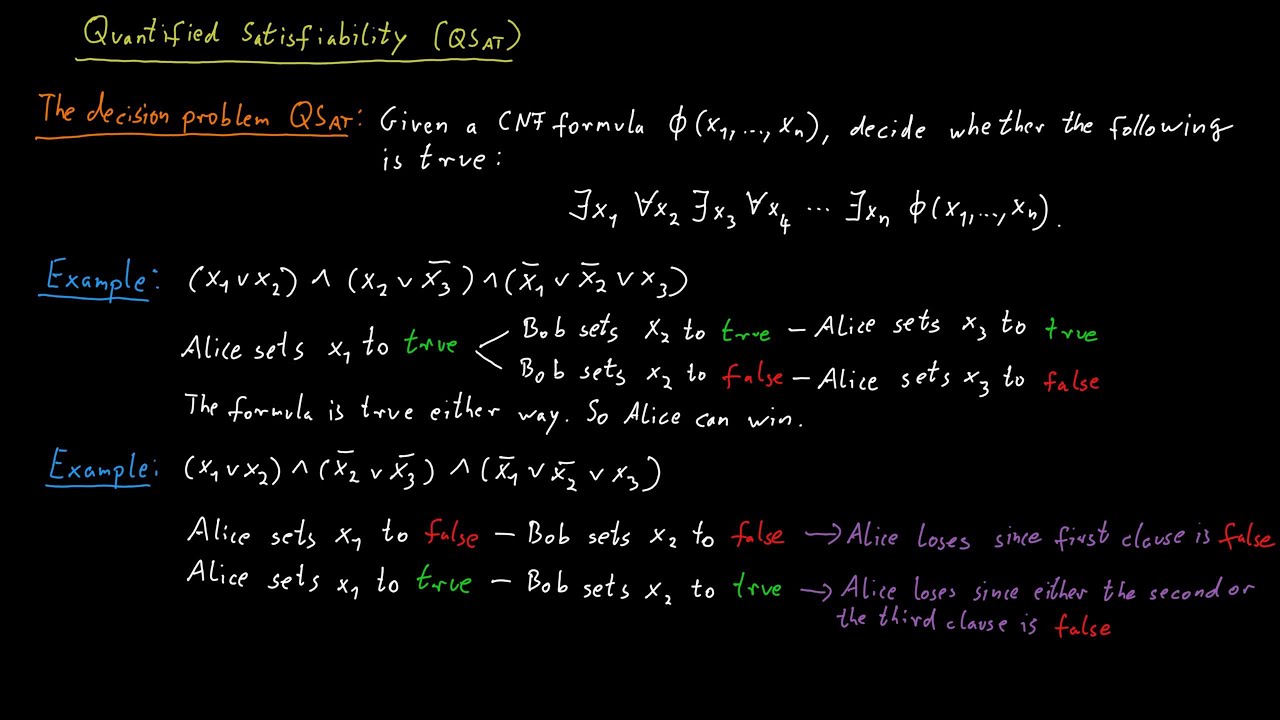 Quantified Satisfiability (QSAT)
The decision problem QSAT: Given a CNF formula ϕ(x₁,...,xₙ), decide whether the following
is true:
∃x₁ ∀x₂ ∃x₃ ∀x₄ ... ∃xₙ ϕ(x₁,...,xₙ).
Example: (x₁ ∨ x₂) ∧ (x₂ ∨ x̅₃) ∧ (x̅₁ ∨ x̅₂ ∨ x₃)
Bob sets x₂ to true – Alice sets x₃ to true
Alice sets x₁ to true
Bob sets x₂ to false – Alice sets x₃ to false
The formula is true either way. So Alice can win.
Example: (x₁ ∨ x₂) ∧ (x̅₂ ∨ x̅₃) ∧ (x̅₁ ∨ x̅₂ ∨ x₃)
Alice sets x₁ to false – Bob sets x₂ to false → Alice loses since first clause is false
Alice sets x₁ to true – Bob sets x₂ to true → Alice loses since either the second or
the third clause is false